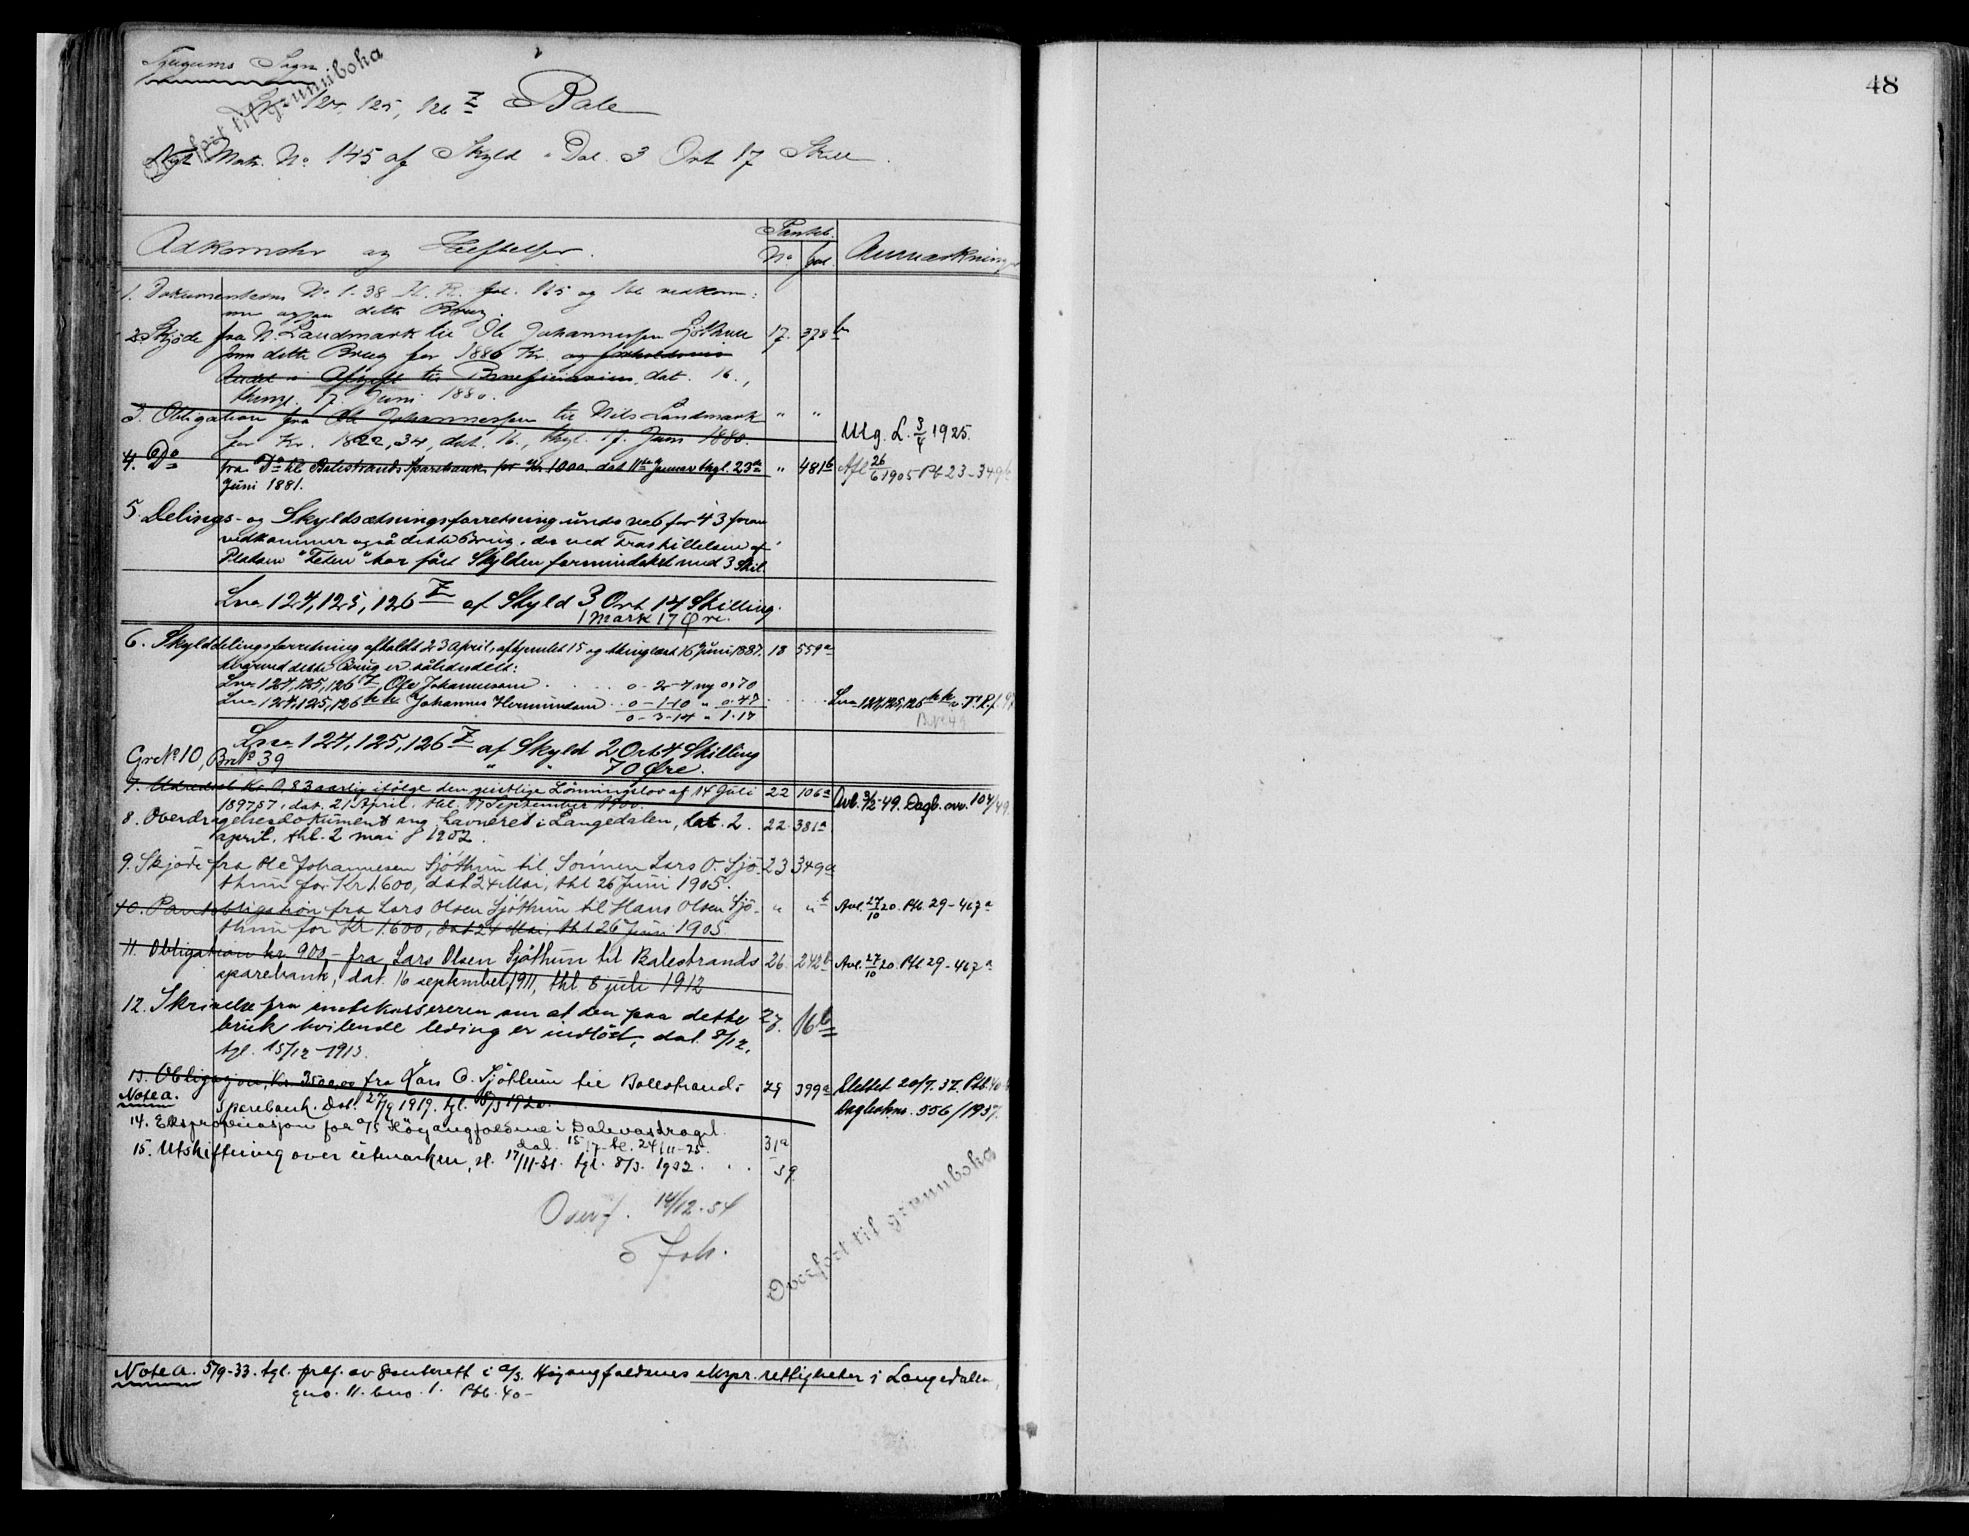 Tjugums Sogn
Overført til grunnboka
Lno 124, 125, 126 Z Bale
Nyt Matr. No 145 af Skyld " Dal. 3 Ort 17 Skill.
48
Adkomster og Heftelser.
Panteb.
No fol.
Anmærkninger
1. Dokumenterne No 1-38 fol. 165 og vedkom-
mer ogsaa dette Brug.
2. Skjøde fra N. Landmark til Ole Johannessen Sjøthun 17. 378 b
paa dette Brug for 1886 Kr. og
Andel i Afgift til Beneficiarius, dat. 16.,
thingl. 17. Juni 1880.
3. Obligation fra Ole Johannessen til Nils Landmark " "
for Kr. 1822,34, dat. 16., thgl. 17. Juni 1880. Utg. L. 3/4 1925.
4. Do fra Do til Balestrands Sparebank for Kr 1000, dat 11te Januar thgl. 23de " 481b Afl 26/6 1905 Pb 23-349b
Juni 1881.
5. Delings- og Skyldsætningsforretning under no 6 for 43 foran
vedkommer også dette Brug, der ved Fraskillelsen af
Pladsen "Teten" har fået Skylden formindsket med 3 Skil.
Lno 124, 125, 126 Z af Skyld 3 Ort 14 Skilling.
1 Mark 17 Øre.
6. Skylddelingsforretning afholdt 23 April, afhjemlet 15 og thinglæst 16 Juni 1887. 18 559a
hvorved dette Brug er således delt:
Lno 124, 125, 126 Z, Ole Johannessen . . . 0-2-4 ny 0.70
Lno 124, 125, 126 kk Johannes Hermundsen . . 0-1-10 " 0.47 Lno 124, 125, 126 kk
0-3-14 " 1.17
Lno 124, 125, 126 Z af Skyld 2 Ort 4 Skilling
Gr No 10, Br No 39 " " 70 Øre.
7. Udredsel Kr. 0,83 aarlig ifølge den geistlige Lønningslov af 14 Juli 22 106a Avl. 3/2-49. Dagb. nr. 104/49.
1897 §7, dat. 21 April, thl. 17 September 1900.
8. Overdragelsesdokument ang. havneret i Langedalen, dat. 2. 22. 381a
april, thl. 2 mai 1902.
9. Skjøde fra Ole Johannesen Sjøthun til Sønnen Lars O. Sjø- 23 349a
thun for Kr 1.600, dat 24 Mai, thl 26 Juni 1905.
10. Pantobligation fra Lars Olsen Sjøthun til Hans Olsen Sjø- " " b Avl. 27/10 20. Pb. 29-467a
thun for Kr 1.600, dat 24 Mai, thl 26 Juni 1905
11. Obligation kr. 900,- fra Lars Olsen Sjøthun til Balestrands 26. 242b Avl. 27/10 20. Pb. 29-467a
sparebank, dat. 16 september 1911, thl. 8 juli 1912
12. Skrivelse fra om at den paa dette 27. 16b
bruk hvilende leding er indløst, dat. 8/12,
tgl. 15/12 1913.
13. Obligasjon, Kr. 3500,00 fra Lars O. Sjøthun til Balestrands 29 399a Slettet 20/7. 37. Pb. 40
Note a. Sparebank. Dat. 27/9 1919. tgl. 15/3 1920. Dagboknr. 556/1937.
14. Ekspropriasjon for a/s Høyangfaldene i Dalevasdraget.
dat. 15/7- tl. 24/11-25. 31a
15. Utskiftning over utmarken, sl. 17/11-31. tgl. 8/3. 1932 . . . 39
Overf. 14/12-54
Overført til grunnboka
Note a. 5/9-33. tgl. pref. av panterett i a/s. Høyangfaldenes ekspr. rettigheter i Langedalen,
gno. 11. bno. 1. Pb. 40-